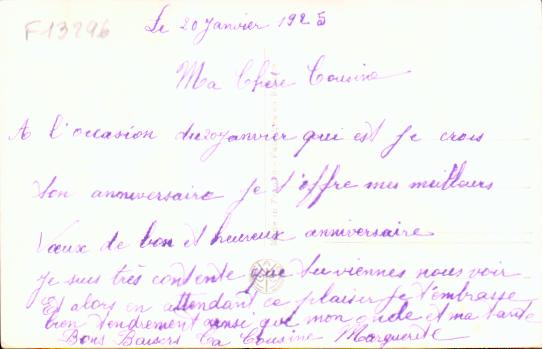 F13296
Le 20 Janvier 1925
Ma Chère Cousine
A l'occasion du 20 janvier qui est je crois
ton anniversaire je t'offre mes meilleurs
Vœux de bon et heureux anniversaire
Je suis très contente que tu viennes nous voir
Et alors en attendant ce plaisir je t'embrasse
bien tendrement ainsi que mon oncle et ma tante
Bons Baisers Ta Cousine Marguerite